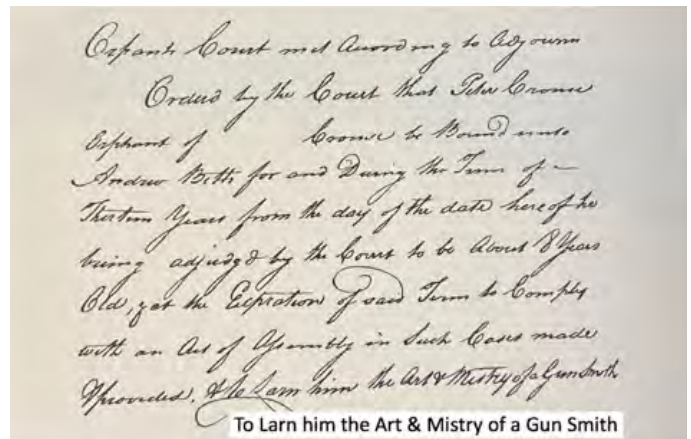 Orphants Court met Acording to Adjourn
Orderd by the Court that Peter Crouse
Orphant of Crouse be Bound unto
Andrew Betts for and During the Term of
Thirteen Years from the day of the date hereof he
being adjudgd by the Court to be About 8 Years
Old, & at the Expration of said Term to Comply
with an Act of Assembly in Such Cases made
& provided. & to Larn him the Art & Mistry of a Gun Smith
To Larn him the Art & Mistry of a Gun Smith